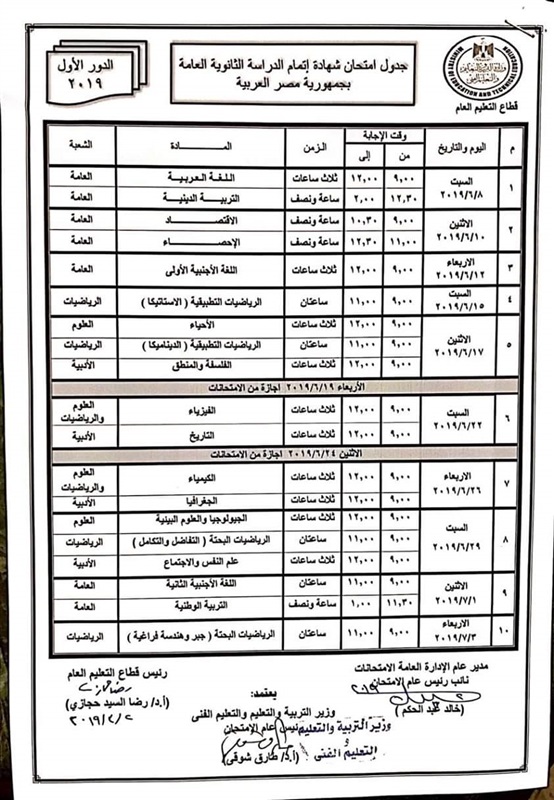 MINISTRY OF EDUCATION AND TECHNICAL EDUCATION
قطاع التعليم العام
جدول امتحان شهادة إتمام الدراسة الثانوية العامة
بجمهورية مصر العربية
الدور الأول
٢٠١٩
م اليوم والتاريخ وقت الإجابة من إلى الزمن المــــادة الشعبة
١ السبت ٢٠١٩/٦/٨ ٩,٠٠ ١٢,٠٠ ثلاث ساعات اللغة العربية العامة
١٢,٣٠ ٢,٠٠ ساعة ونصف التربية الدينية العامة
٢ الاثنين ٢٠١٩/٦/١٠ ٩,٠٠ ١٠,٣٠ ساعة ونصف الاقتصاد العامة
١١,٠٠ ١٢,٣٠ ساعة ونصف الإحصاء العامة
٣ الاربعاء ٢٠١٩/٦/١٢ ٩,٠٠ ١٢,٠٠ ثلاث ساعات اللغة الأجنبية الأولى العامة
٤ السبت ٢٠١٩/٦/١٥ ٩,٠٠ ١١,٠٠ ساعتان الرياضيات التطبيقية ( الاستاتيكا ) الرياضيات
٥ الاثنين ٢٠١٩/٦/١٧ ٩,٠٠ ١٢,٠٠ ثلاث ساعات الأحياء العلوم
٩,٠٠ ١١,٠٠ ساعتان الرياضيات التطبيقية ( الديناميكا ) الرياضيات
٩,٠٠ ١٢,٠٠ ثلاث ساعات الفلسفة والمنطق الأدبية
الأربعاء ٢٠١٩/٦/١٩ اجازة من الامتحانات
٦ السبت ٢٠١٩/٦/٢٢ ٩,٠٠ ١٢,٠٠ ثلاث ساعات الفيزياء العلوم والرياضيات
٩,٠٠ ١٢,٠٠ ثلاث ساعات التاريخ الأدبية
الاثنين ٢٠١٩/٦/٢٤ اجازة من الامتحانات
٧ الاربعاء ٢٠١٩/٦/٢٦ ٩,٠٠ ١٢,٠٠ ثلاث ساعات الكيمياء العلوم والرياضيات
٩,٠٠ ١٢,٠٠ ثلاث ساعات الجغرافيا الأدبية
٨ السبت ٢٠١٩/٦/٢٩ ٩,٠٠ ١٢,٠٠ ثلاث ساعات الجيولوجيا والعلوم البيئية العلوم
٩,٠٠ ١١,٠٠ ساعتان الرياضيات البحتة ( التفاضل والتكامل ) الرياضيات
٩,٠٠ ١٢,٠٠ ثلاث ساعات علم النفس والاجتماع الأدبية
٩ الاثنين ٢٠١٩/٧/١ ٩,٠٠ ١١,٠٠ ساعتان اللغة الأجنبية الثانية العامة
١١,٣٠ ١,٠٠ ساعة ونصف التربية الوطنية العامة
١٠ الاربعاء ٢٠١٩/٧/٣ ٩,٠٠ ١١,٠٠ ساعتان الرياضيات البحتة ( جبر وهندسة فراغية ) الرياضيات
مدير عام الإدارة العامة الامتحانات
نائب رئيس عام الامتحان
(خالد عبد الحكم)
رئيس قطاع التعليم العام
(أ.د/ رضا السيد حجازي)
٢٠١٩/٢/٢
يعتمد:
وزير التربية والتعليم والتعليم الفنى
رئيس عام الإمتحان
وزير التربية والتعليم
و
التعليم الفنى
(أ.د/ طارق شوقى)